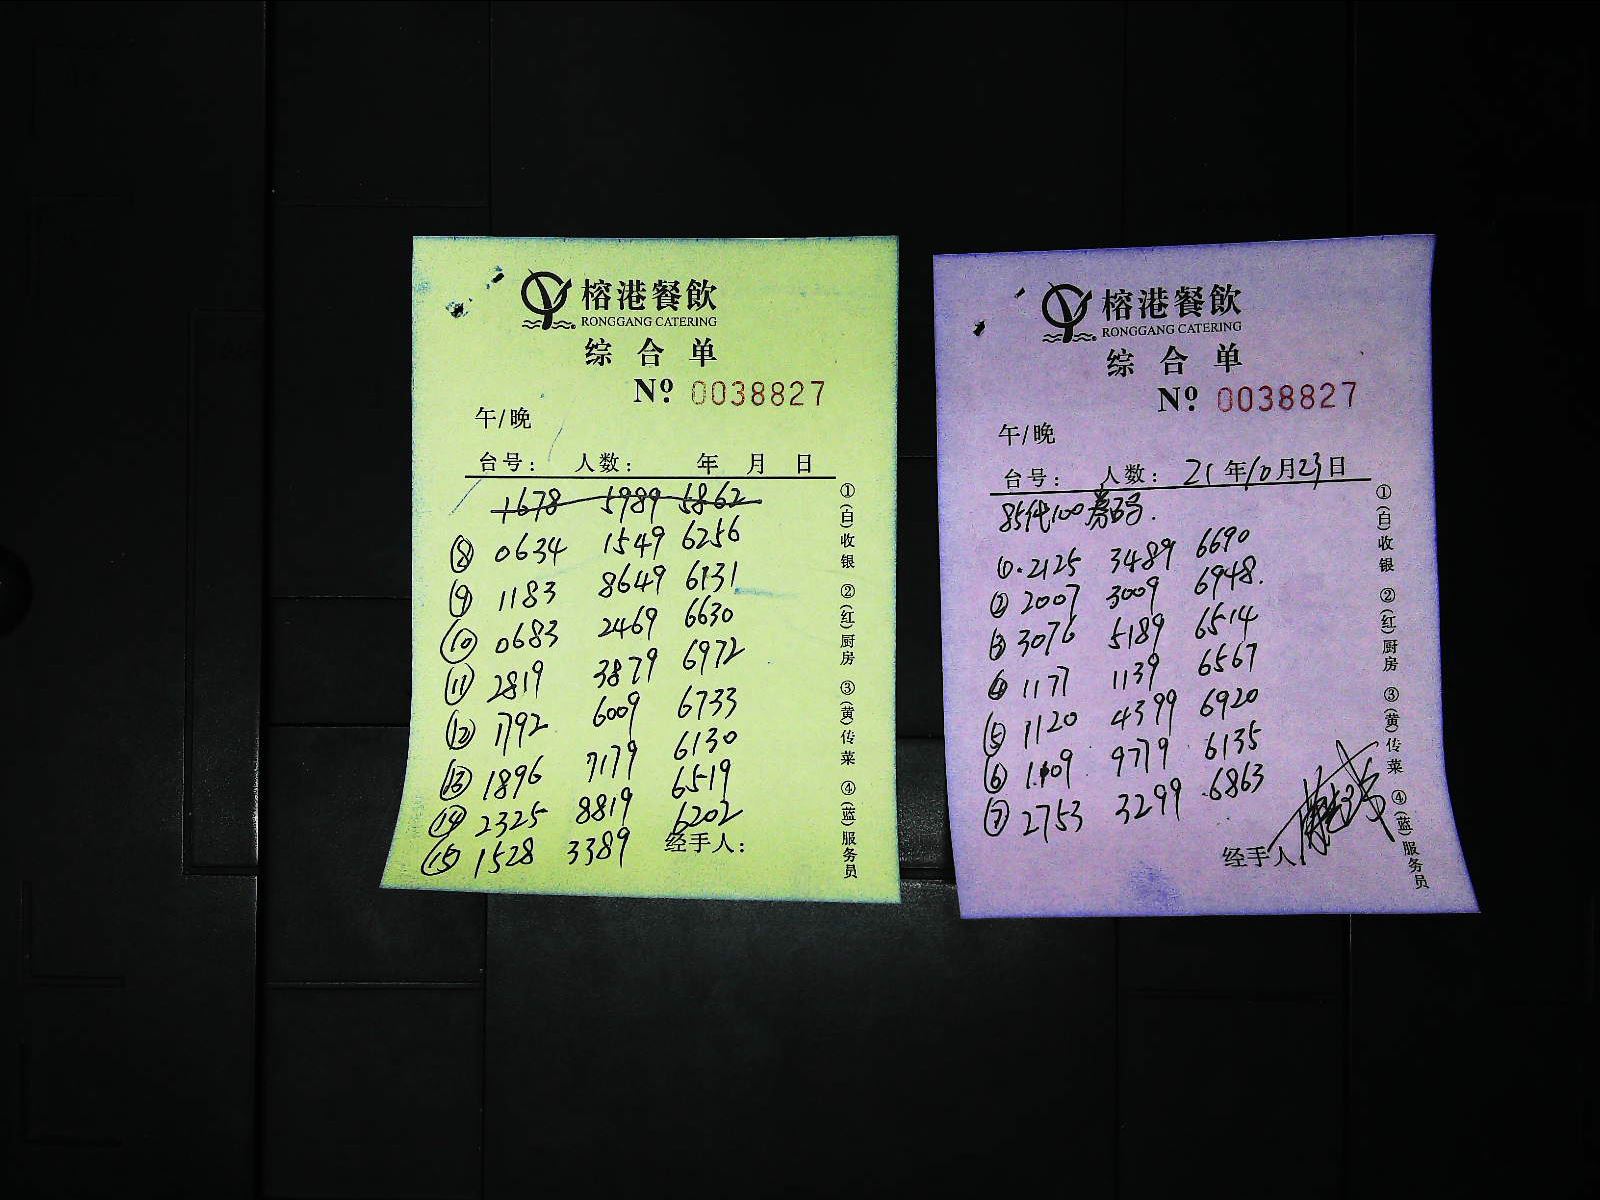 榕港餐飲
RONGGANG CATERING
综合单
Nº 0038827
午/晚
台号: 人数: 年 月 日
1678 5989 5862
⑧ 0634 1549 6256
⑨ 1183 8649 6131
⑩ 0683 2469 6630
⑪ 2819 3879 6972
⑫ 1792 6009 6733
⑬ 1896 7179 6130
⑭ 2325 8819 6519
⑮ 1528 3389 6202
经手人:
①(白)收银 ②(红)厨房 ③(黄)传菜 ④(蓝)服务员
榕港餐飲
RONGGANG CATERING
综合单
Nº 0038827
午/晚
台号: 人数: 21年10月23日
85代100券码.
①.2125 3489 6690
② 2007 3009 6948.
③ 3076 5189 6514
④ 1177 1139 6567
⑤ 1120 4399 6920
⑥ 1109 9779 6135
⑦ 2753 3299 6863
经手人
①(白)收银 ②(红)厨房 ③(黄)传菜 ④(蓝)服务员